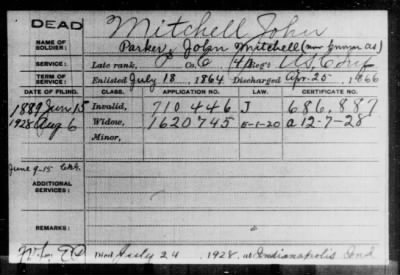 DEAD
Mitchell John
NAME OF SOLDIER:
Parker, John Mitchell (now known as)
SERVICE:
Late rank, Co. Reg't
TERM OF SERVICE:
Enlisted July 18, 1864 Discharged Apr. 25, 1866
DATE OF FILING. CLASS. APPLICATION NO. LAW. CERTIFICATE NO.
1889 Jun 15 Invalid, 710446 J 686.887
1928 Aug 6 Widow, 1620745 5-1-20 a 12-7-28
Minor,
June 9-15
ADDITIONAL SERVICES:
REMARKS:
Died July 24, 1928, at Indianapolis Ind